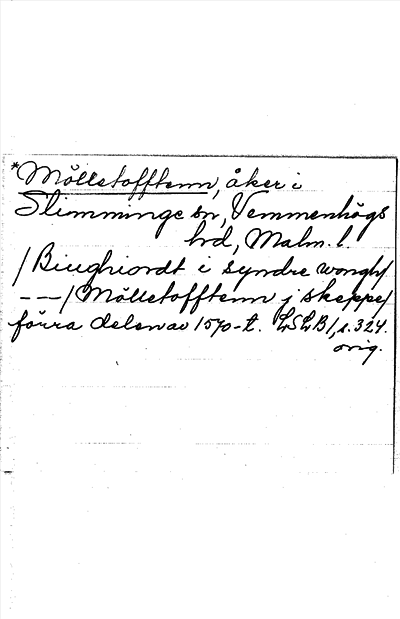 *Mölletofftenn, åker i
Slimminge sn, Vemmenhögs
hrd, Malm. l.
/Biughiordt i syndre wongh/
---/Mölletofftenn j skeppe/
förra delen av 1570-t. LSLB1, s. 324.
orig.